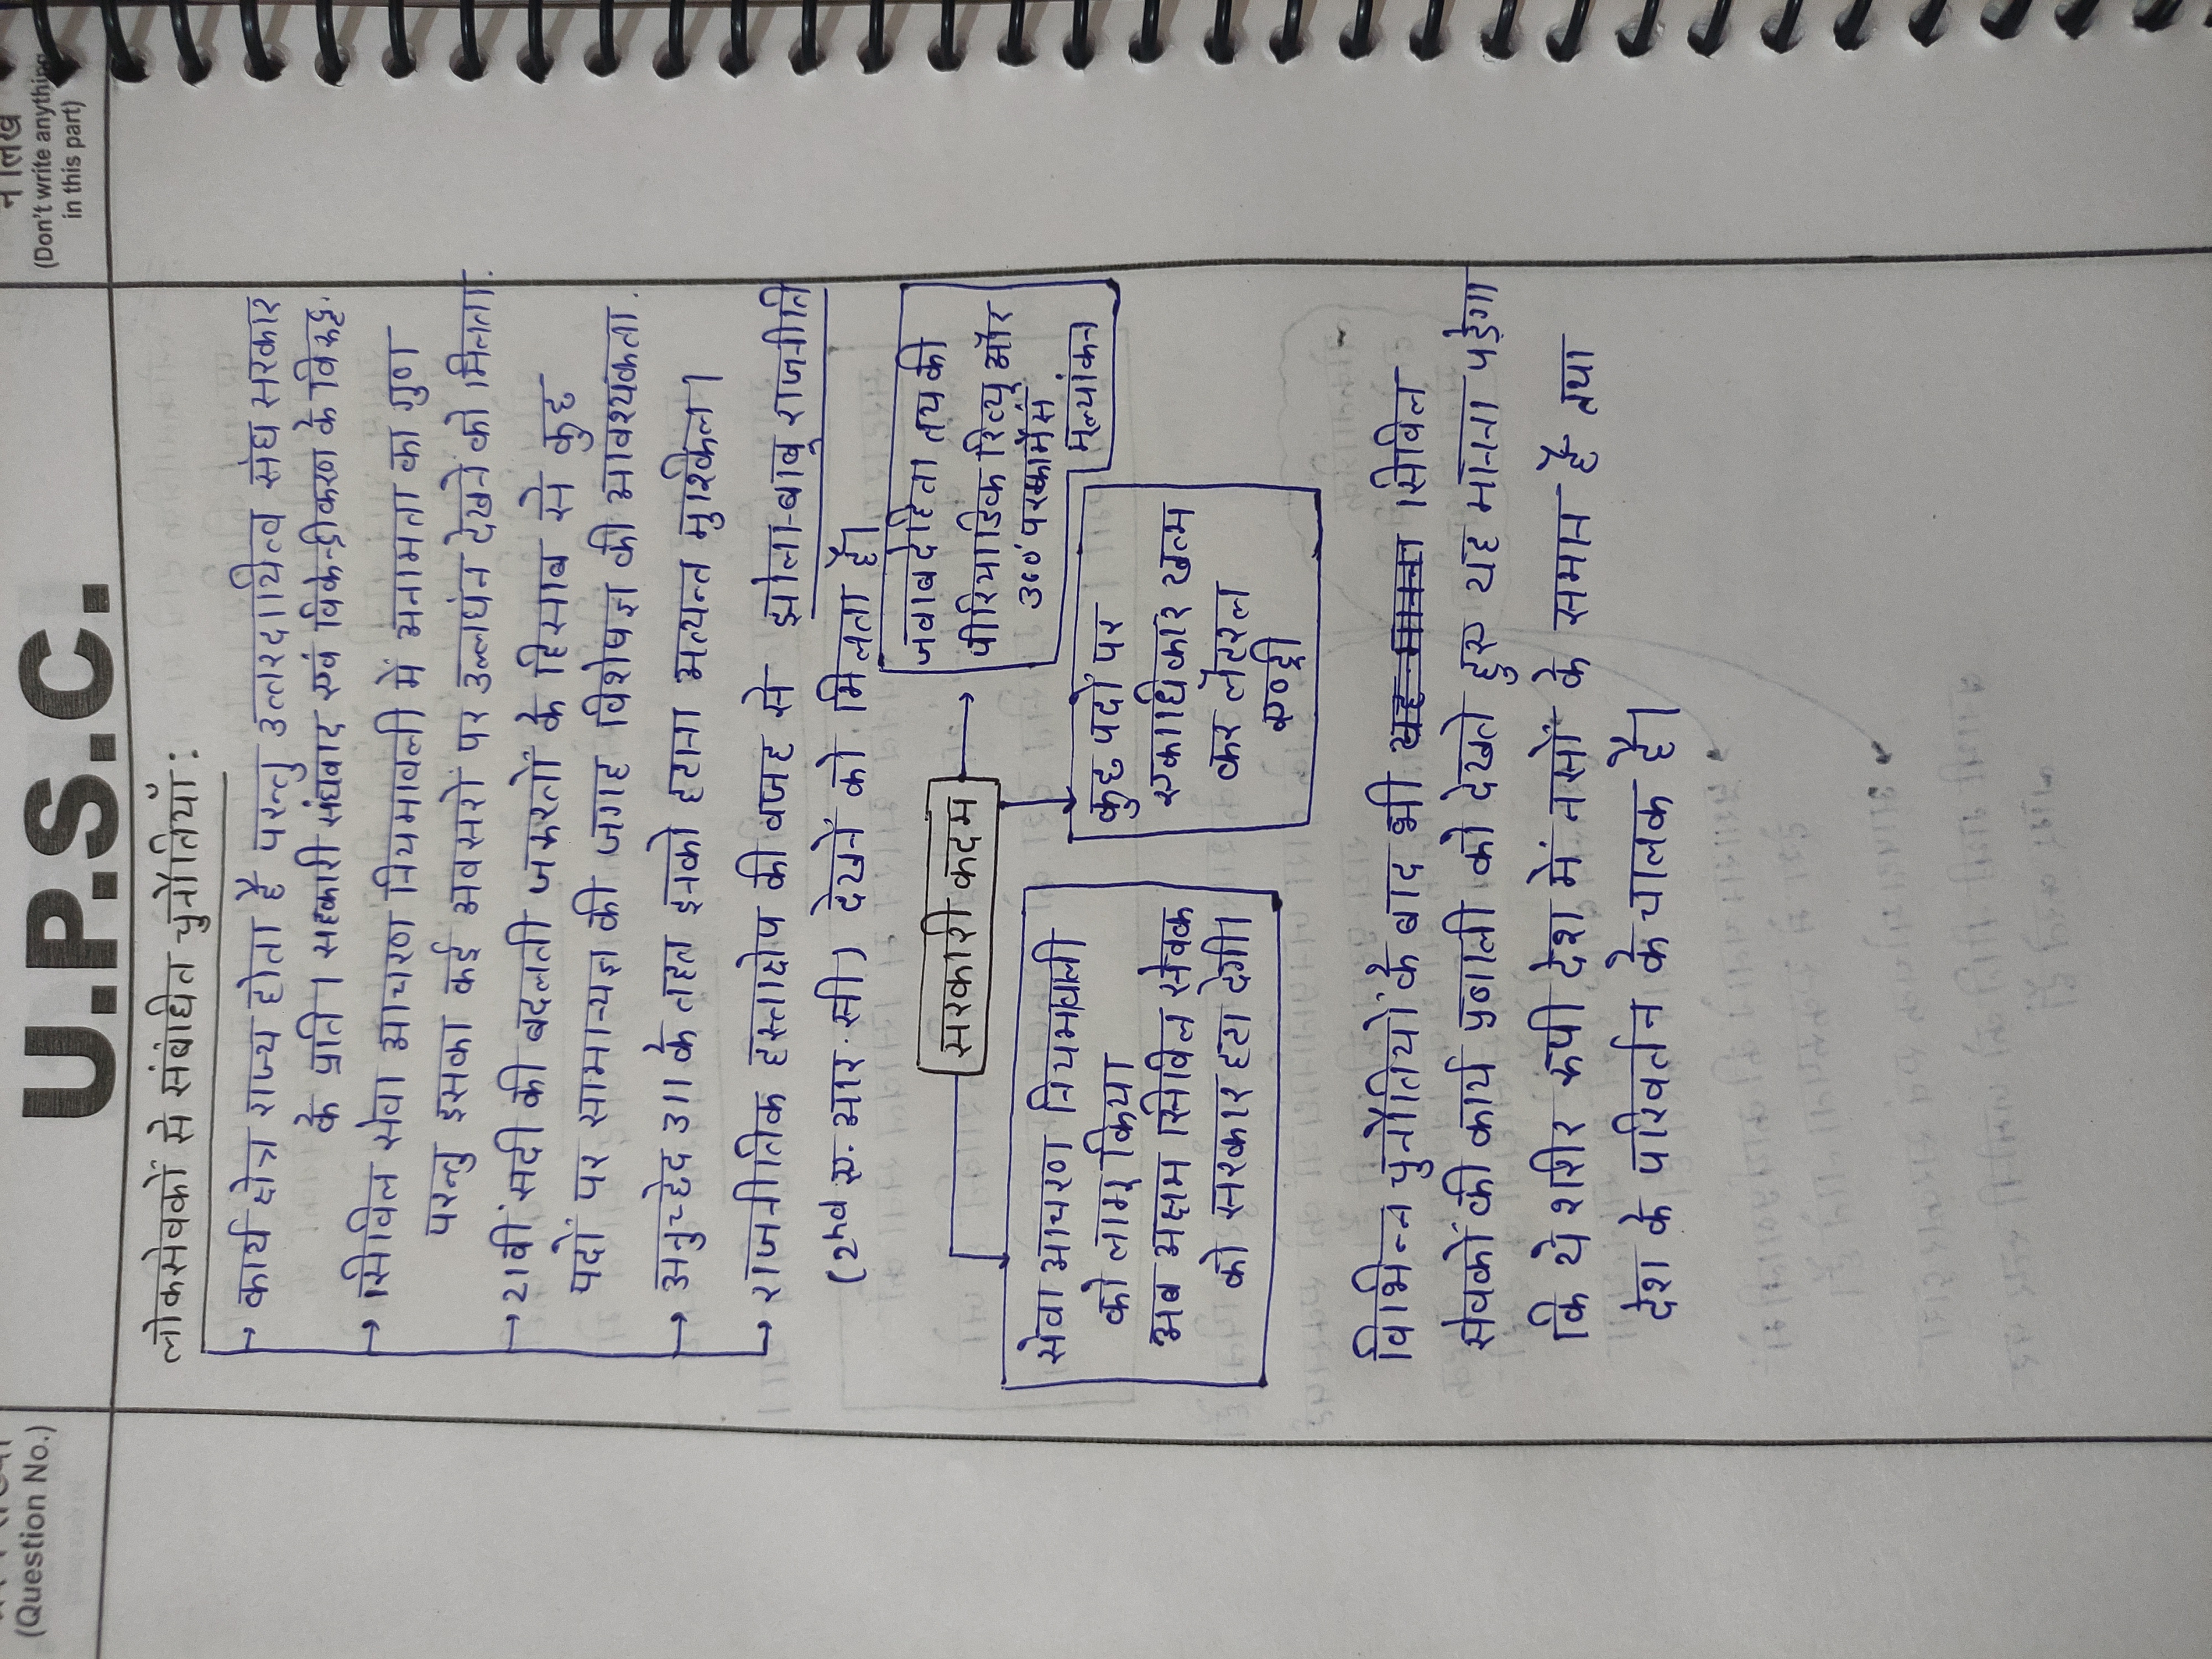 न लिखें
(Don't write anything
in this part)
(Question No.)
U.P.S.C.
लोकसेवकों से संबंधित चुनौतियाँ :
→ कार्य क्षेत्र राज्य होता है परन्तु उत्तरदायित्व संघ सरकार
के प्रति। सहकारी संघवाद एवं विकेन्द्रीकरण के विरुद्ध.
→ सिविल सेवा आचरण नियमावली में अनामता का गुण
परन्तु इसका कई अवसरों पर उल्लघंन देखने को मिलता.
→ 21वीं सदी की बदलती जरूरतों के हिसाब से कुछ
पदों पर सामान्यज्ञ की जगह विशेषज्ञ की आवश्यकता.
→ अनुच्छेद 311 के तहत इनको हटाना अत्यन्त मुश्किल।
→ राजनीतिक हस्ताक्षेप की वजह से झोला-बाबू राजनीति
(2nd ए. आर. सी) देखने को मिलता है।
सरकारी कदम
जवाबदेहिता तय की
पीरियाडिक रिव्यु और
360° परफार्मेंस
मूल्यांकन
कुछ पदों पर
एकाधिकार खत्म
कर लेटरल
एण्ट्री
सेवा आचरण नियमावली
को लागू किया
अब अक्षम सिविल सेवक
को सरकार हटा देगी।
विभिन्न चुनौतियों के बाद भी यह मानना सिविल
सेवकों की कार्य प्रणाली को देखते हुए यह मानना पड़ेगा
कि ये शरीर रूपी देश में नसों के समान हैं तथा
देश के परिवर्तन के चालक है।